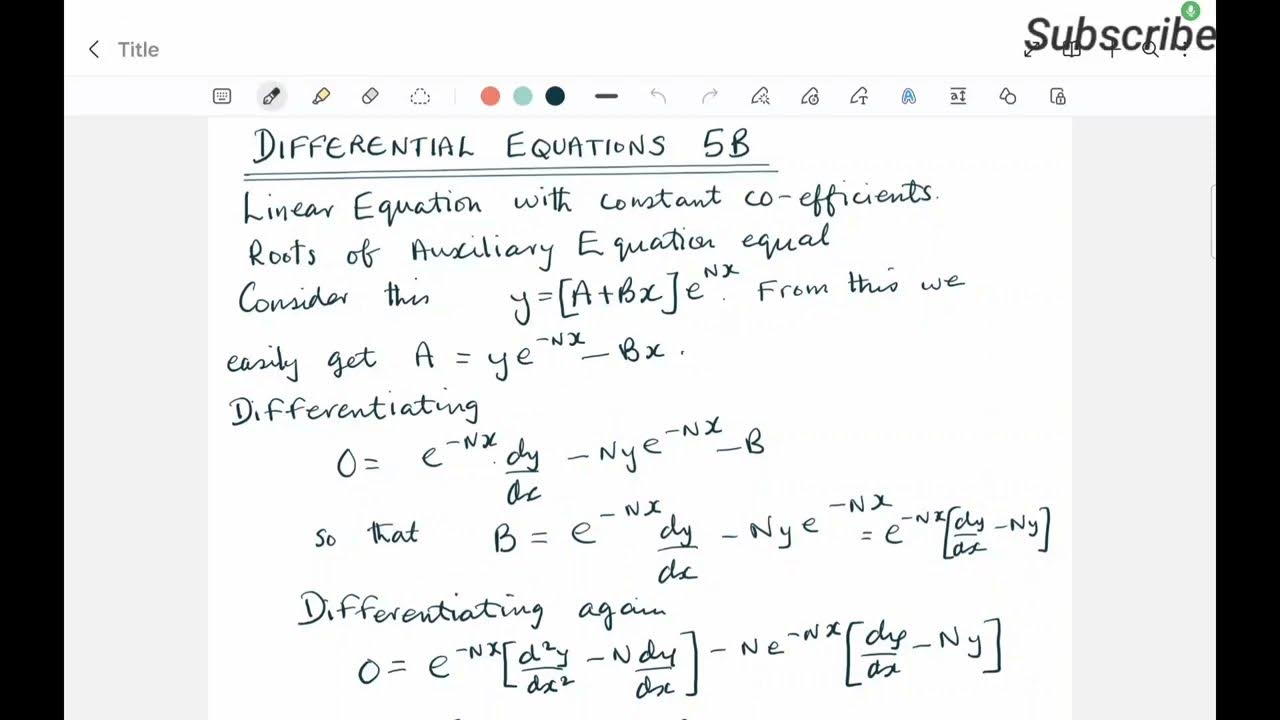 Subscribe
Title
DIFFERENTIAL EQUATIONS 5B
Linear Equation with constant co-efficients.
Roots of Auxiliary Equation equal
Consider this y=[A+Bx]e^{Nx}. From this we
easily get A = ye^{-Nx} - Bx.
Differentiating
0 = e^{-Nx} dy/dx - Nye^{-Nx} - B
so that B = e^{-Nx} dy/dx - Nye^{-Nx} = e^{-Nx}[dy/dx - Ny]
Differentiating again
0 = e^{-Nx}[d²y/dx² - N dy/dx] - Ne^{-Nx}[dy/dx - Ny]